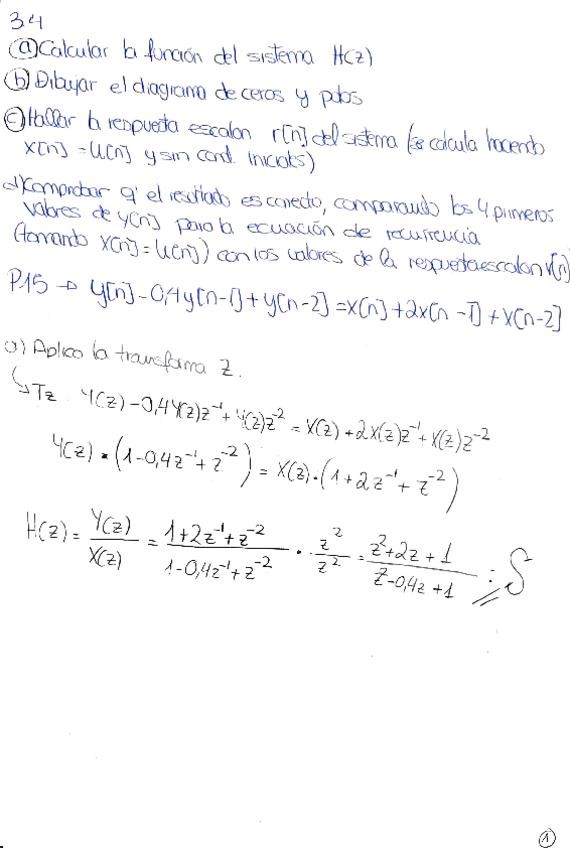 34
(a) Calcular la función del sistema H(z)
(b) Dibujar el diagrama de ceros y polos
(c) Hallar la respuesta escalon r[n] del sistema (se calcula haciendo
x[n] = u[n] y sin cond. iniciales)
d) Comprobar q' el resultado es correcto, comparando los 4 primeros
valores de y[n] para la ecuación de recurrencia
(tomando x[n] = u[n]) con los valores de la respuesta escalon r[n]
P15 → y[n] - 0,4y[n-1] + y[n-2] = x[n] + 2x[n-1] + x[n-2]
a) Aplico la transforma Z.
↳ Tz Y(z) - 0,4Y(z)z⁻¹ + Y(z)z⁻² = X(z) + 2X(z)z⁻¹ + X(z)z⁻²
Y(z) • (1 - 0,4z⁻¹ + z⁻²) = X(z) • (1 + 2z⁻¹ + z⁻²)
H(z) = Y(z)/X(z) = (1 + 2z⁻¹ + z⁻²)/(1 - 0,4z⁻¹ + z⁻²) • z²/z² = (z² + 2z + 1)/(z² - 0,4z + 1)
1